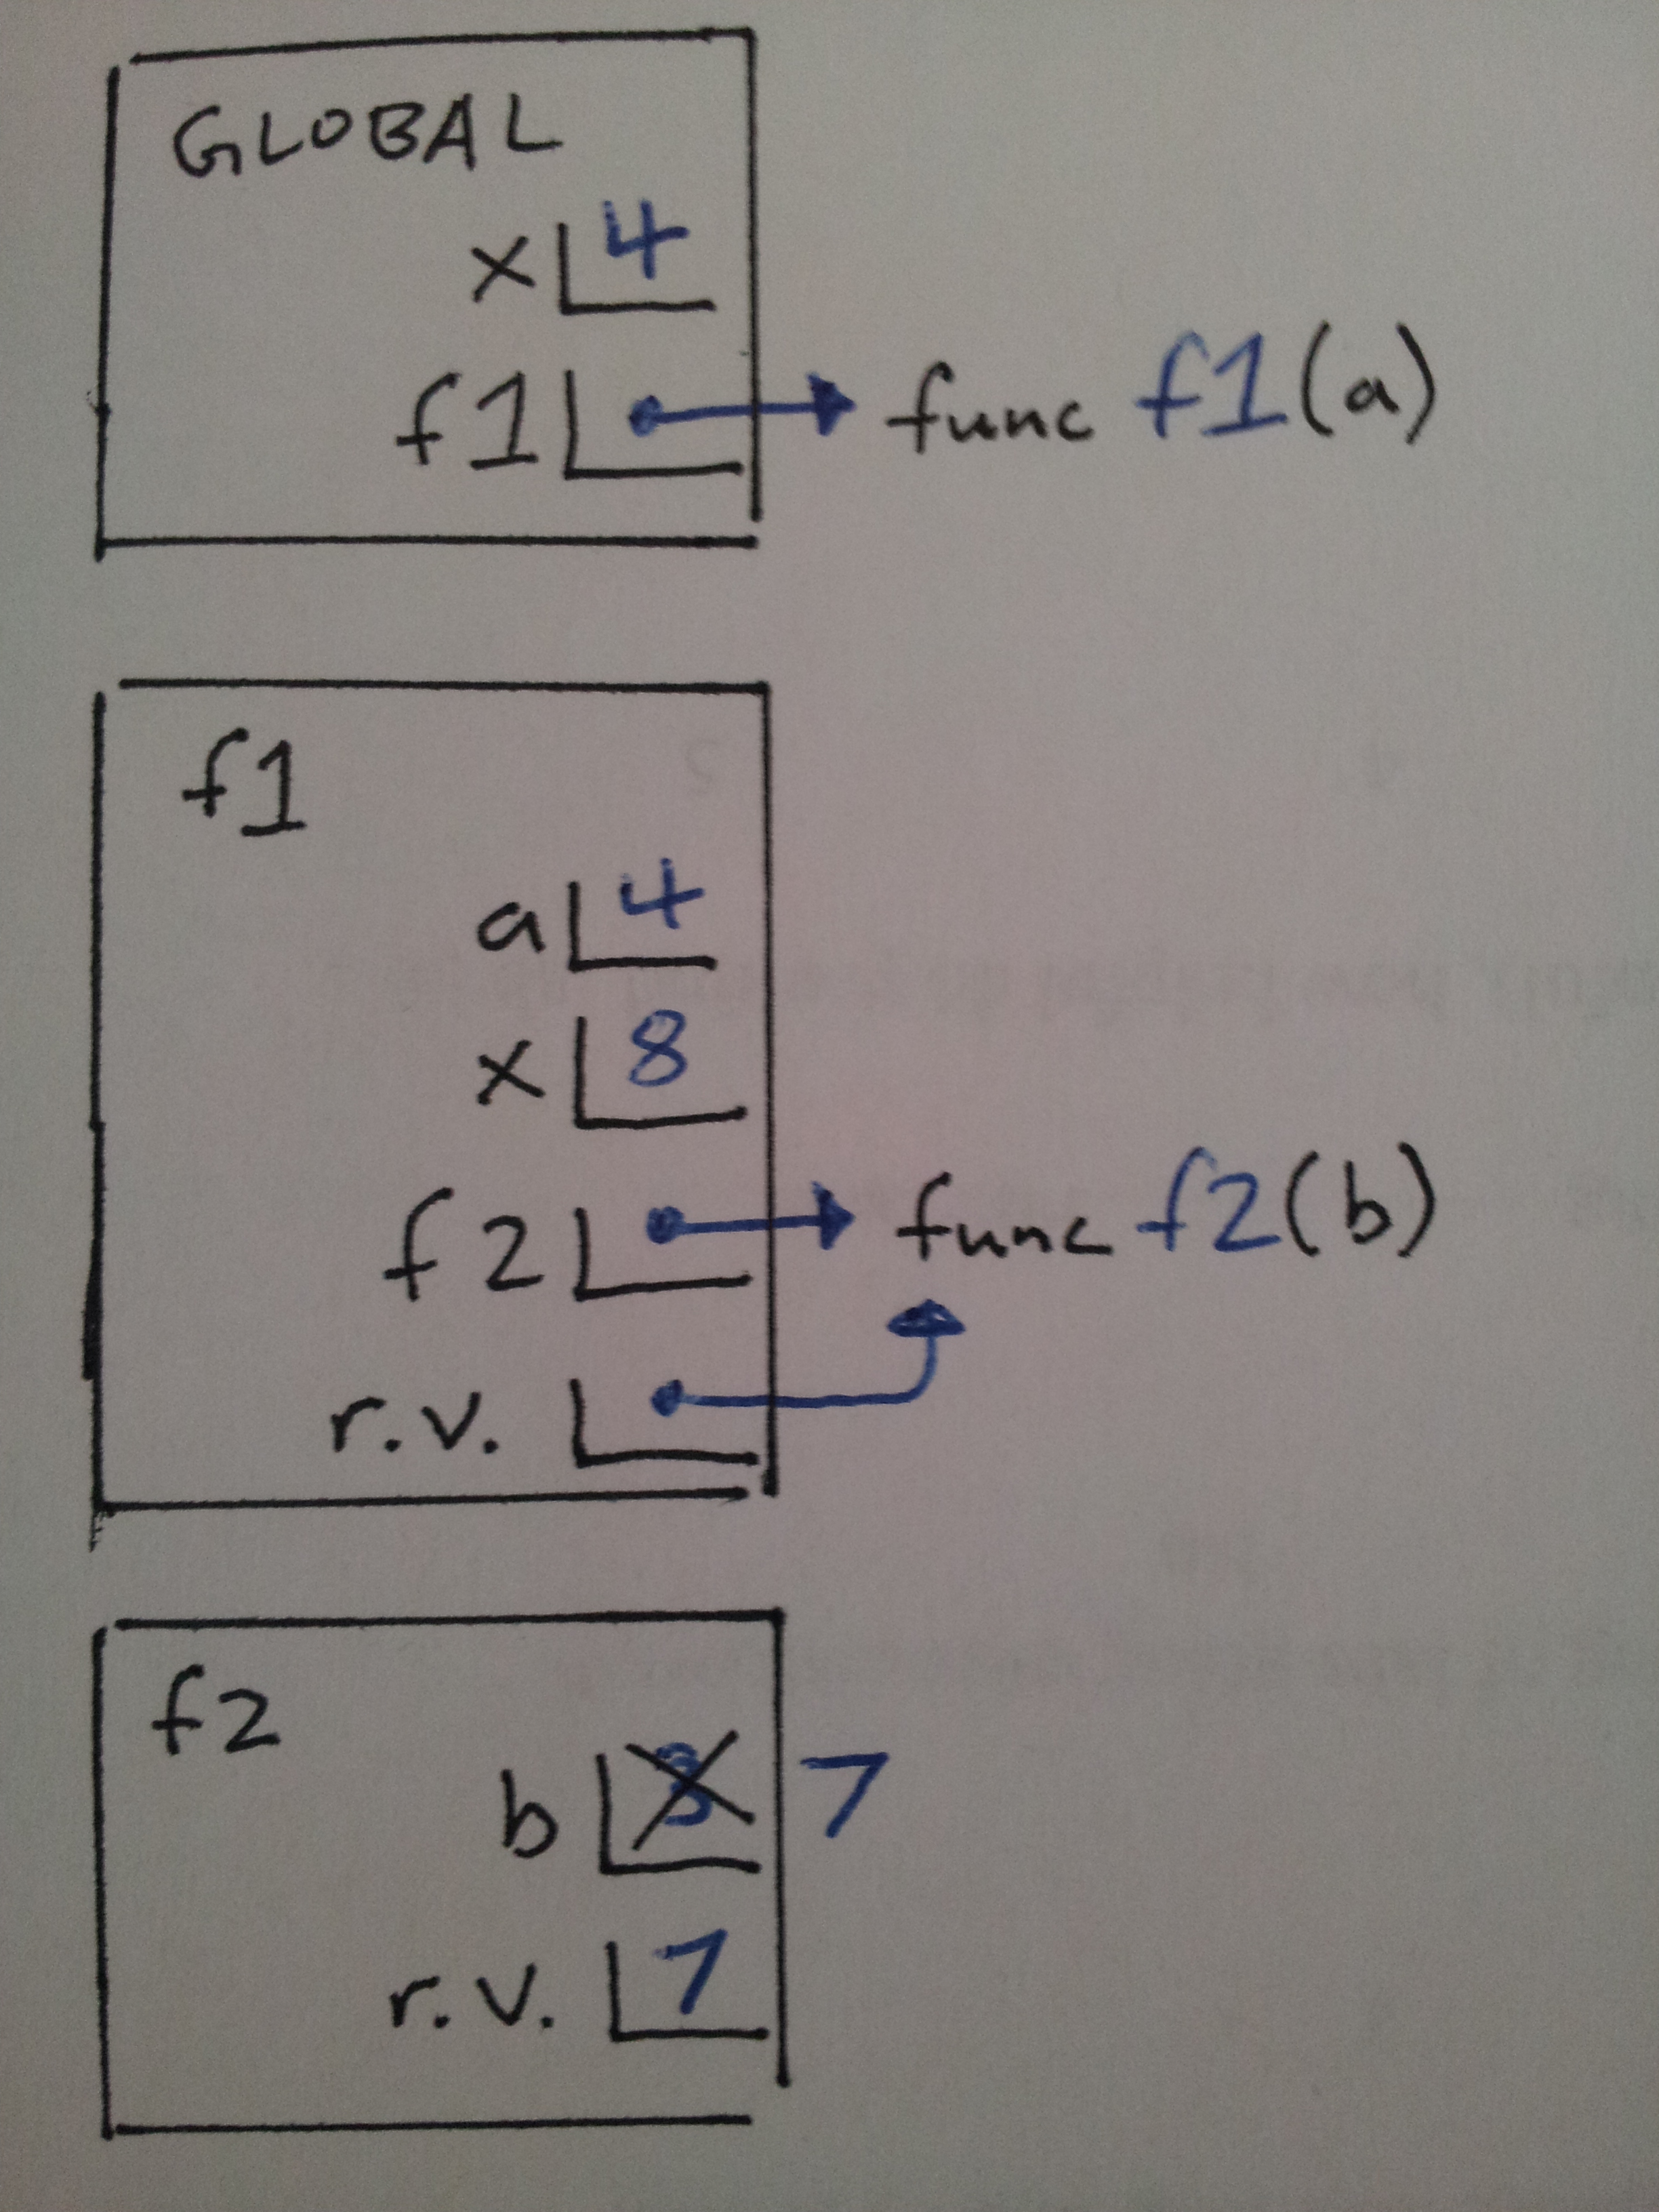 GLOBAL
x 4
f1 func f1(a)
f1
a 4
x 8
f2 func f2(b)
r.v.
f2
b 3 7
r.v. 7